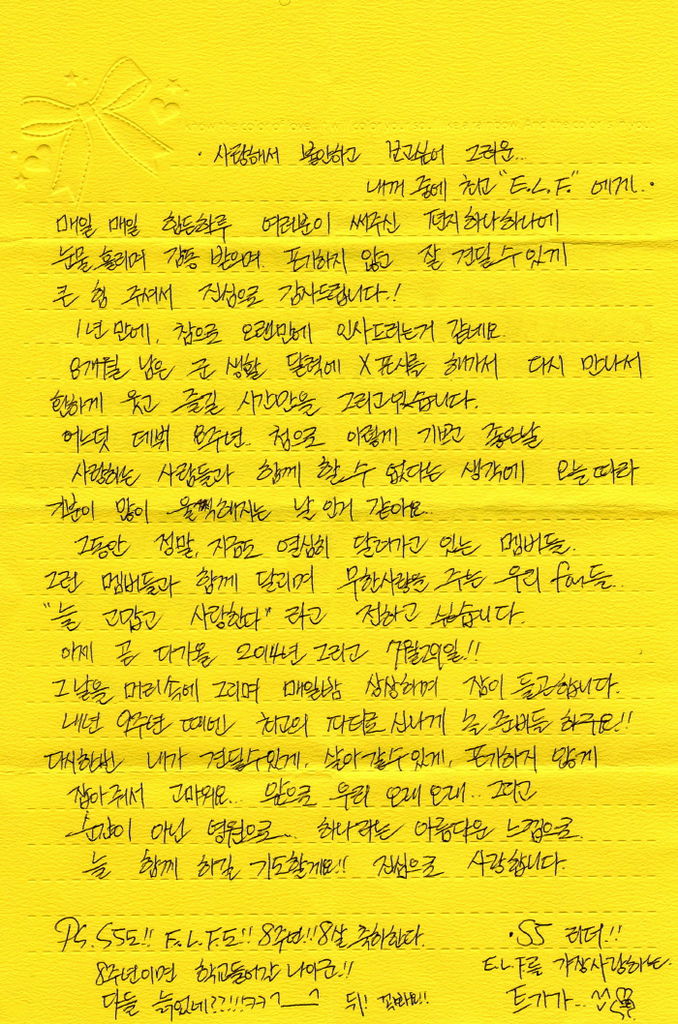 · 사랑해서 불안하고 보고싶어 그리운..
내꺼 중에 최고 "E.L.F." 에게..
매일 매일 힘든하루 여러분이 써주신 편지하나하나에
눈물 흘리며 감동 받으며 포기하지 않고 잘 견딜수있게
큰 힘 주셔서 진심으로 감사드립니다.!
1년 만에, 참으로 오랜만에 인사드리는거 같네요.
8개월 남은 군 생활 달력에 X표시를 해가며 다시 만나서
환하게 웃고 즐길 시간만을 그리고있습니다.
어느덧 데뷔 8주년. 참으로 이렇게 기쁘고 좋은날
사랑하는 사람들과 함께 할수 없다는 생각에 오늘따라
기분이 많이 울쩍해지는 날 인거 같아요..
그동안 정말, 지금도 열심히 달려가고 있는 멤버들.
그런 멤버들과 함께 달리며 무한사랑을 주는 우리 fan들..
"늘 고맙고 사랑한다" 라고 전하고 싶습니다.
이제 곧 다가올 2014년 그리고 7월29일!!
그날을 머리속에 그리며 매일밤 상상하며 잠이 들곤합니다.
내년 9주년 때엔 최고의 파티로 신나게 놀 준비들 하구요!!
다시한번 내가 견딜수있게, 살아갈수있게, 포기하지 않게
잡아줘서 고마워요... 앞으로 우리 오래오래.. 그리고
순간이 아닌 영원으로... 하나라는 아름다운 느낌으로
늘 함께 하길 기도할게요!! 진심으로 사랑합니다.
PS. SS5도!! E.L.F도!! 8주년!! 8살 축하한다.
8주년이면 학교들어갈 나이군!!
다들 늙었네??!!!ㅋㅋ ^__^ 뒤! 꼭봐요!!
·SJ 리더!!
E.L.F를 가장사랑하는
트가가...^^